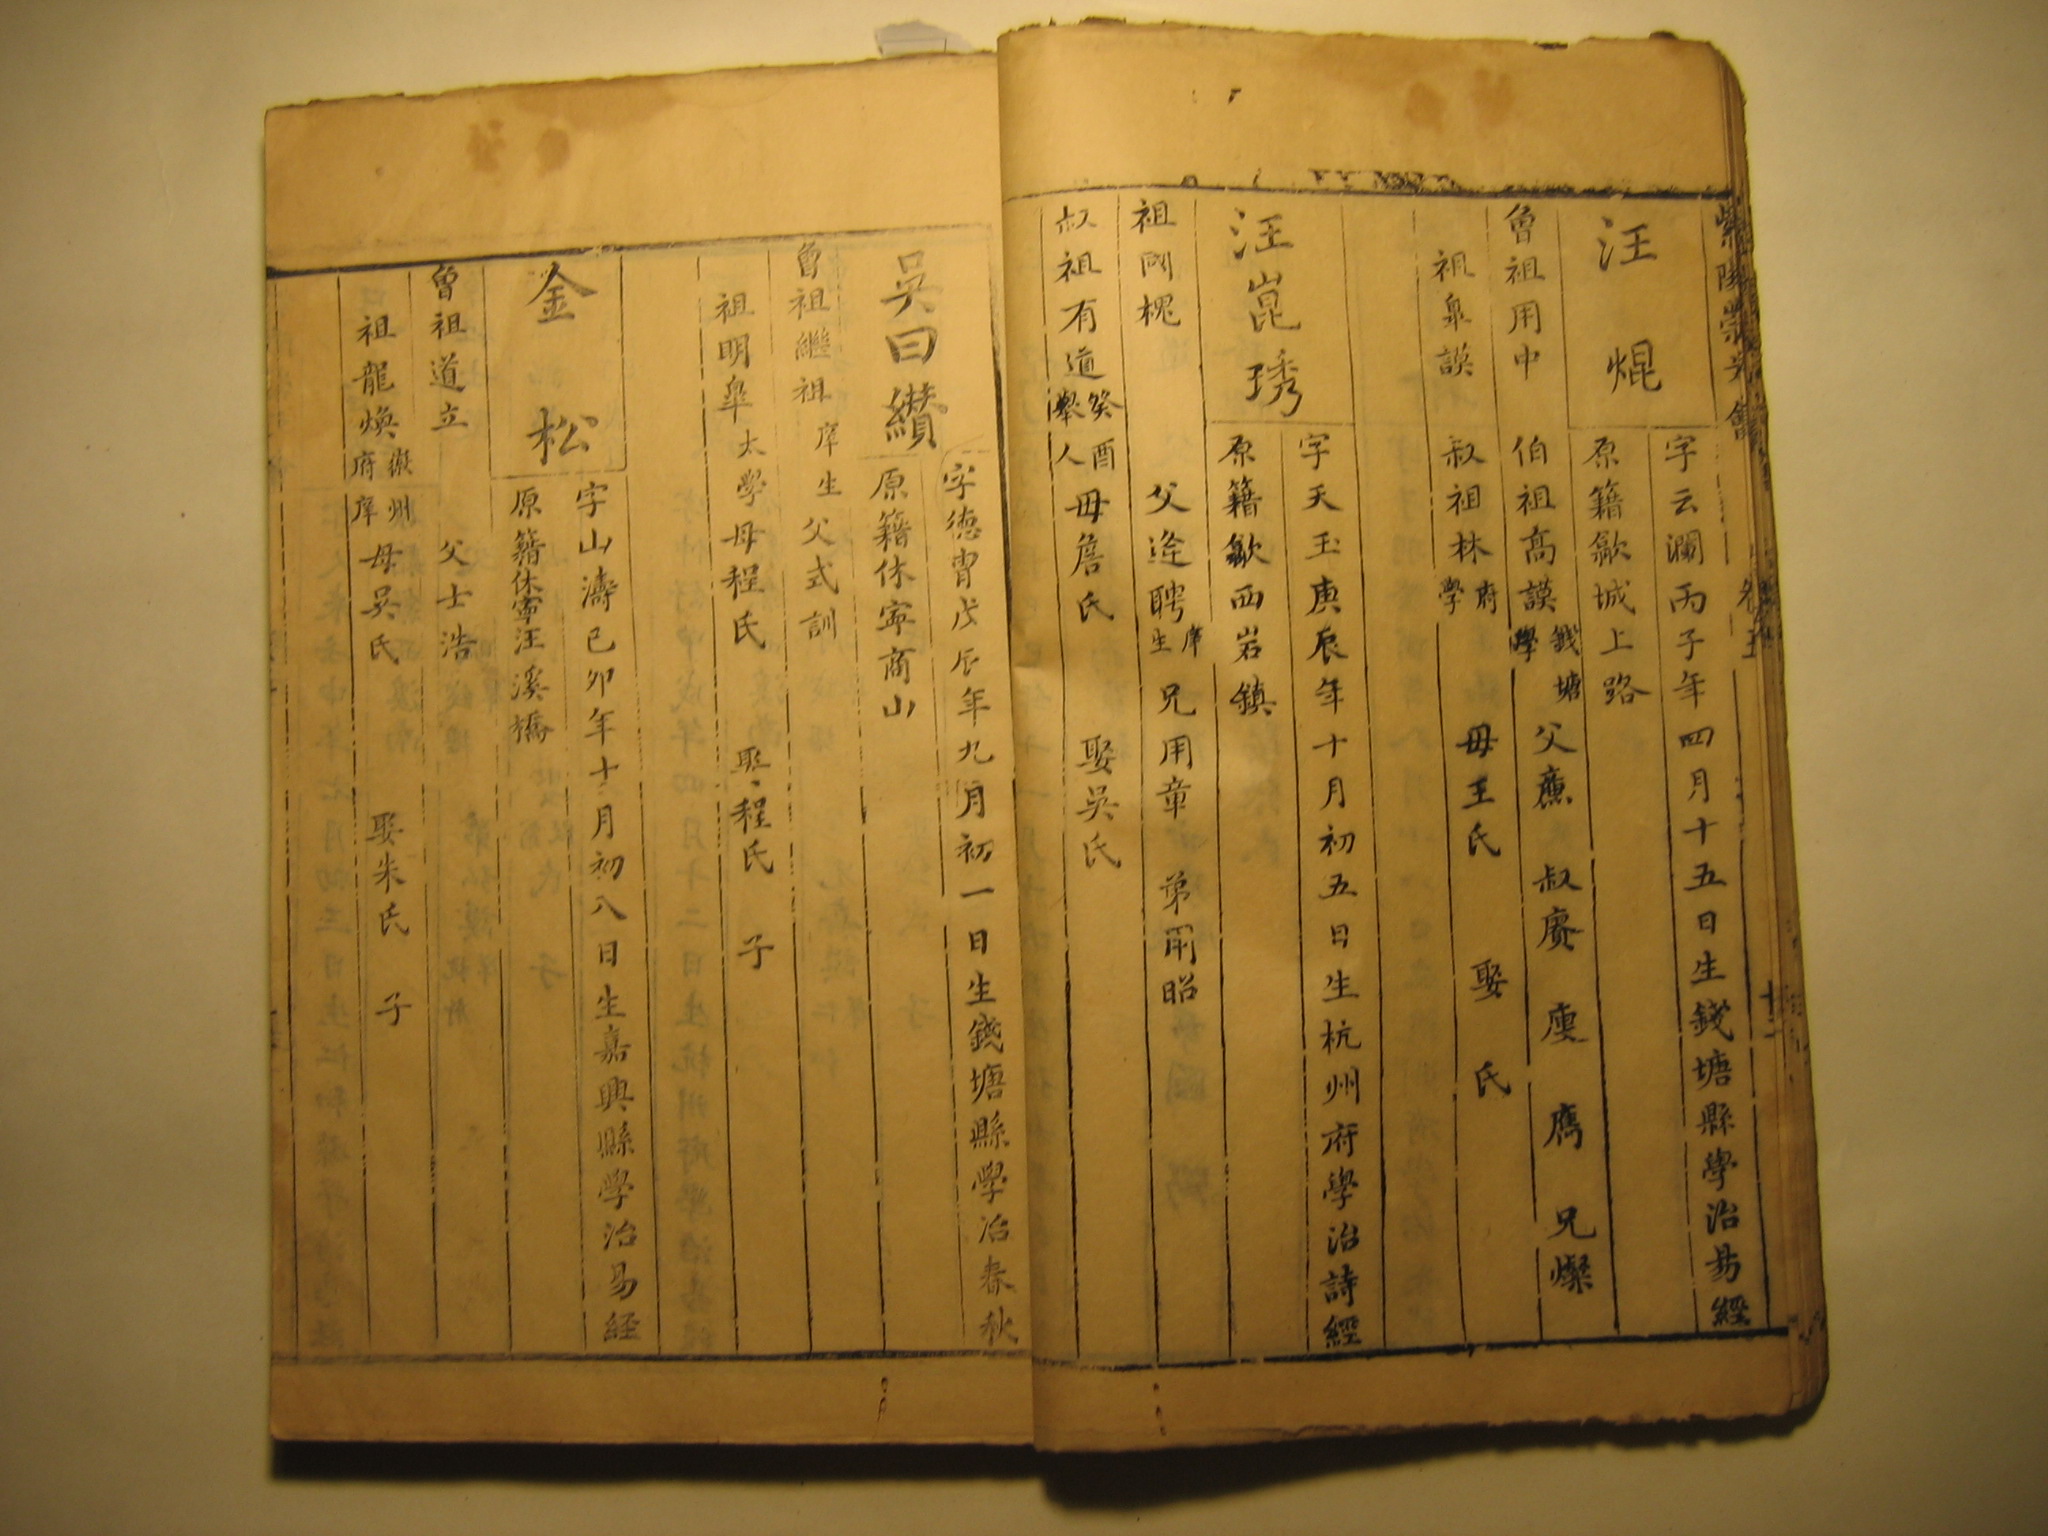 汪焜
字云瀾丙子年四月十五日生錢塘縣學治易經
原籍歙城上路
曾祖用中 伯祖高謨錢塘學 父 叔賡 鷹 兄爍
祖阜謨 叔祖林府學 母王氏 娶 氏
汪崑琇
字天玉庚辰年十月初五日生杭州府學治詩經
原籍歙西岩鎮
祖國槐 父逵聘庠生 兄用章 弟用昭
叔祖有道癸酉人 母詹氏 娶吳氏
吳曰纘
字德胄戊辰年九月初一日生錢塘縣學治春秋
原籍休寧商山
曾祖繼祖庠生 父式訓
祖明皋太學 母程氏 聚程氏 子
金松
字山濤己卯年十一月初八日生嘉興縣學治易經
原籍休寧汪溪橋
曾祖道立 父士浩
祖龍煥徽州府庠 母吳氏 娶朱氏 子